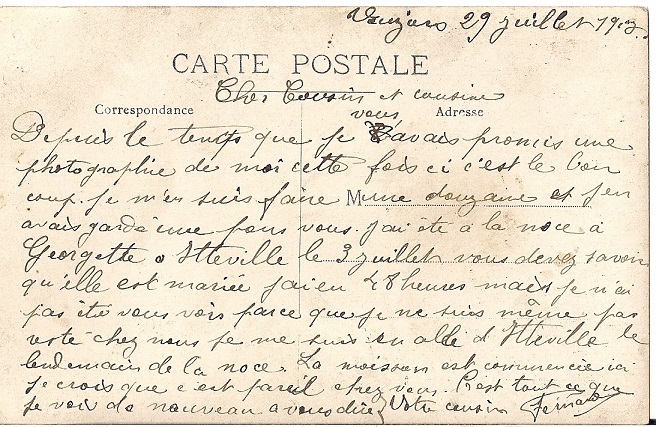 29 juillet 191
CARTE POSTALE
Cher Cousin et cousine
Correspondance
Adresse
vous
Depuis le temps que je avais promis une
photographie de moi cette fois ci c'est le bon
coup. je m'en suis faire M une douzaine et j'en
avais gardé une pour vous. j'ai été à la noce à
Georgette a Itteville le 3 juillet vous devez savoir
qu'elle est mariée j'ai eu 48 heures mais je n'ai
pas été vous voir parce que je ne suis même pas
resté chez nous je me suis en allé d'Itteville le
lendemain de la noce. La moisson est commencée ici
je crois que c'est pareil chez vous. C'est tout ce que
je vois de nouveau a vous dire Votre cousin Fernand